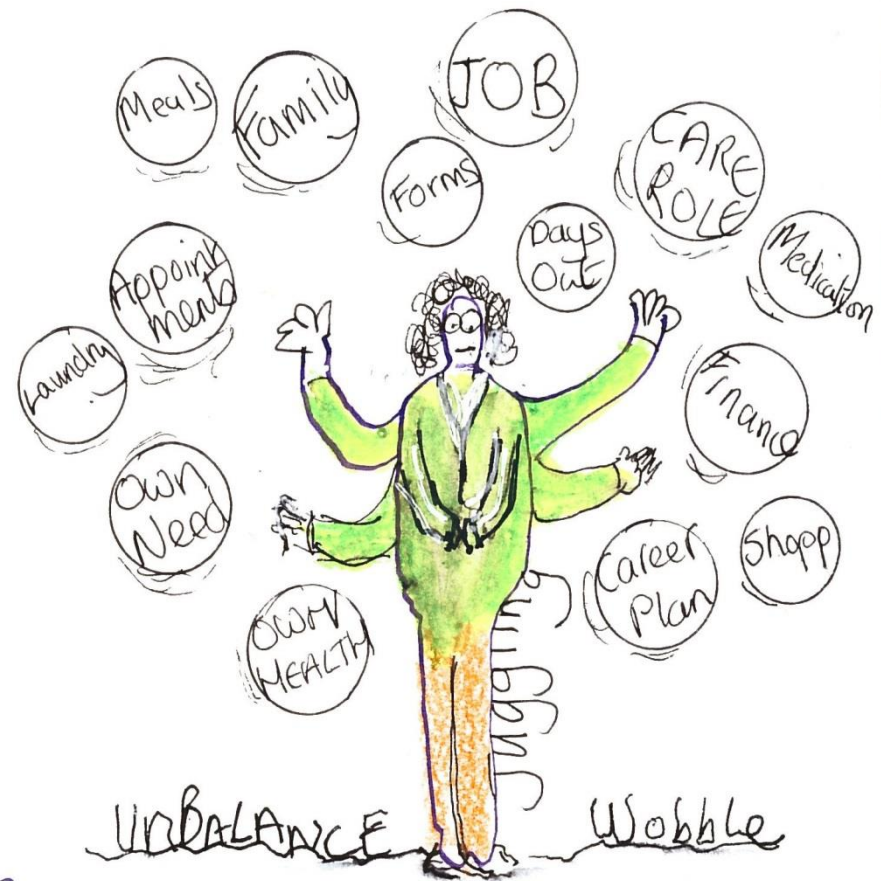 Meals
Family
JOB
Forms
CARE
ROLE
Days
Out
Medication
Appoint
ments
Laundry
Finance
Own
Need
Career
Plan
Shopp
OWN
HEALTH
Juggling
UnBALANCE
Wobble